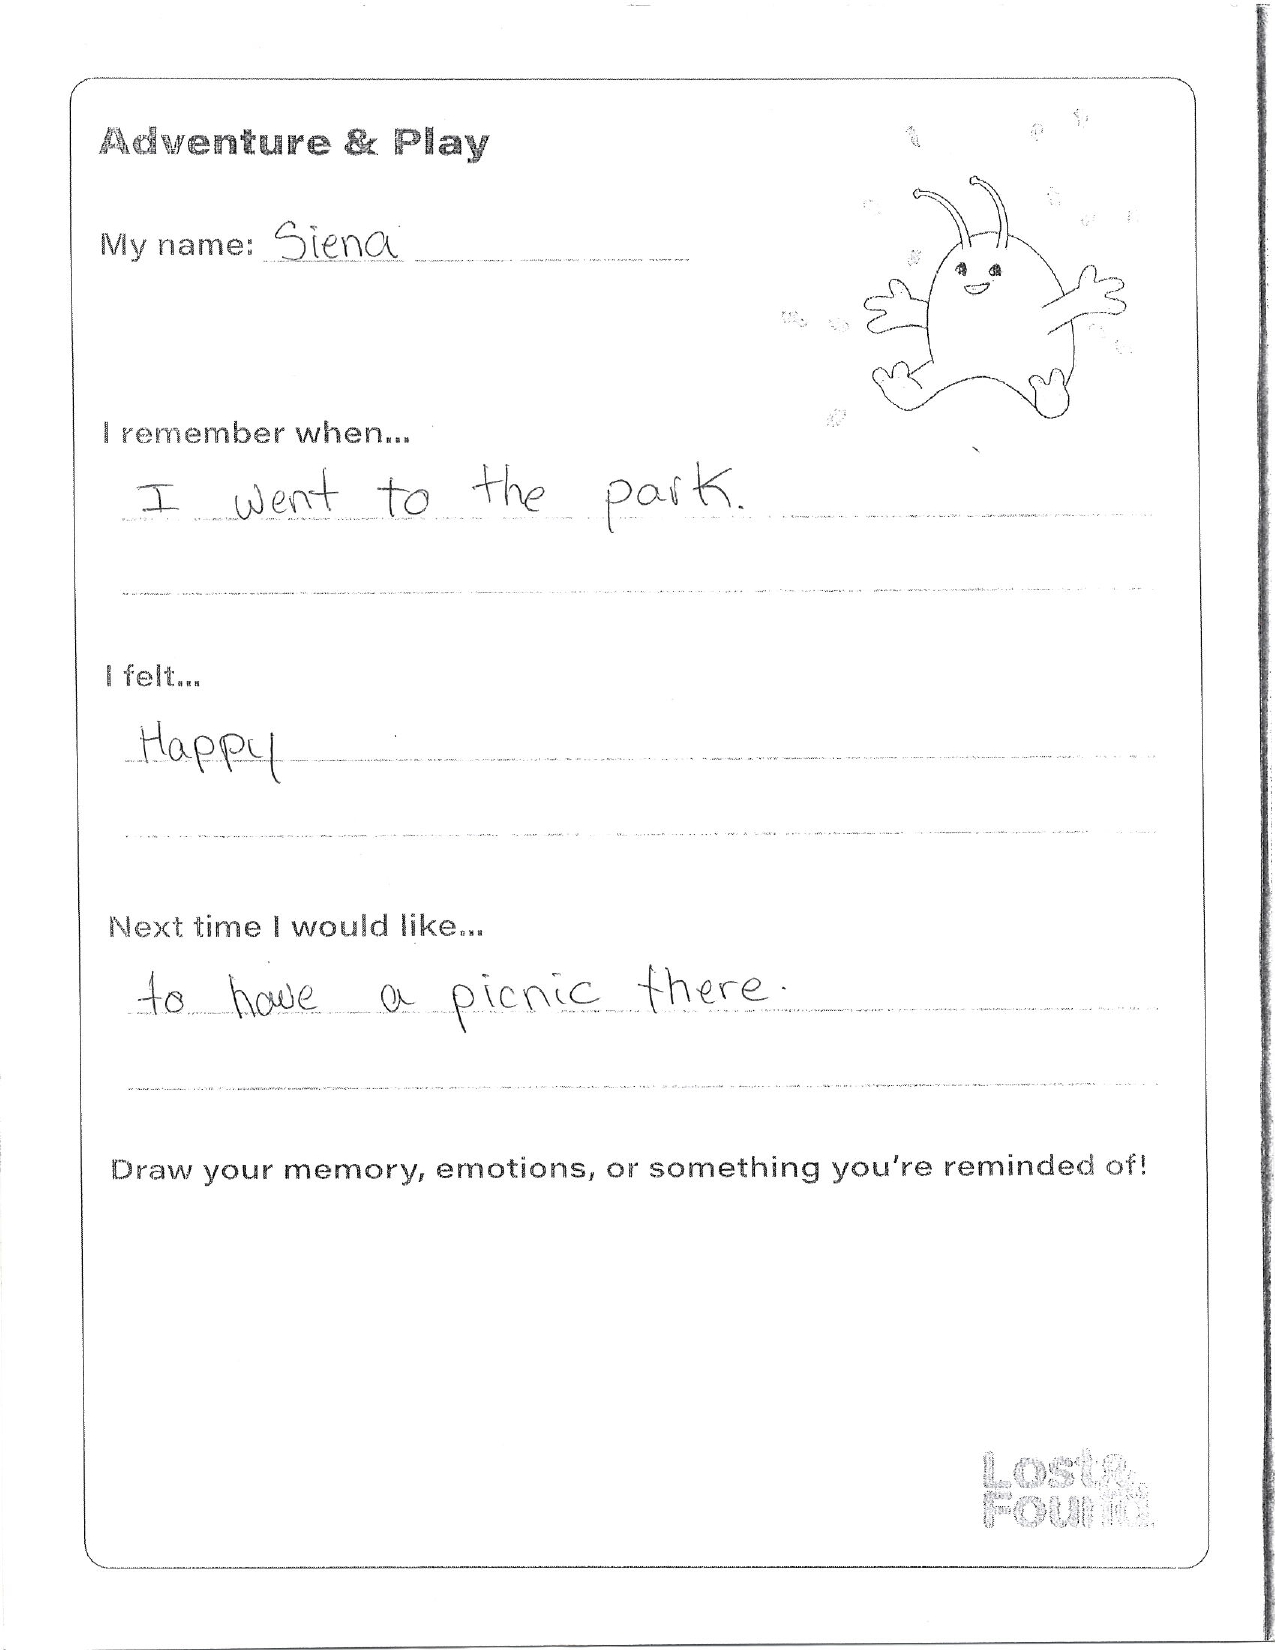 Adventure & Play
My name: Siena
I remember when...
I went to the park.
I felt...
Happy
Next time I would like...
to have a picnic there.
Draw your memory, emotions, or something you're reminded of!
Lost &
Found.